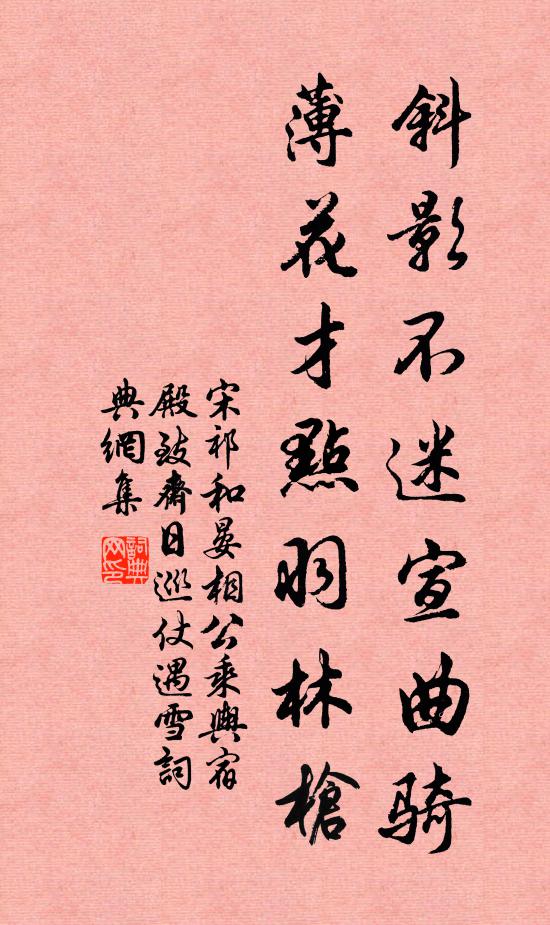 斜影不迷宣曲騎
薄花才點羽林槍
宋祁和晏相公乘輿宿
殿致齋日巡仗遇雪詞
典網集
詞典
网印